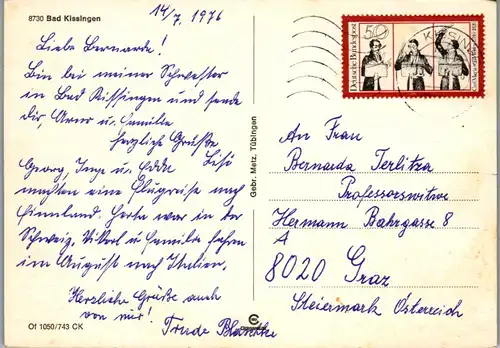 8730 Bad Kissingen
14/7. 1976
Liebe Bernarde!
Bin bei meiner Schwester
in Bad Kissingen und sende
dir, Arno u. Familie
herzliche Grüße
Lisi
Georg, Inge u. Edda
machten eine Flugreise nach
Finnland. Herta war in der
Schweiz, u. Familie fahren
im August nach Italien.
Herzliche Grüße auch
von mir!
Trude
Of 1050/743 CK
Gebr. Metz, Tübingen
Deutsche Bundespost
50
KISSING
An Frau
Bernarda Terlitza
Professorswitwe
Hermann Bahrgasse 8
A
8020 Graz
Steiermark Österreich